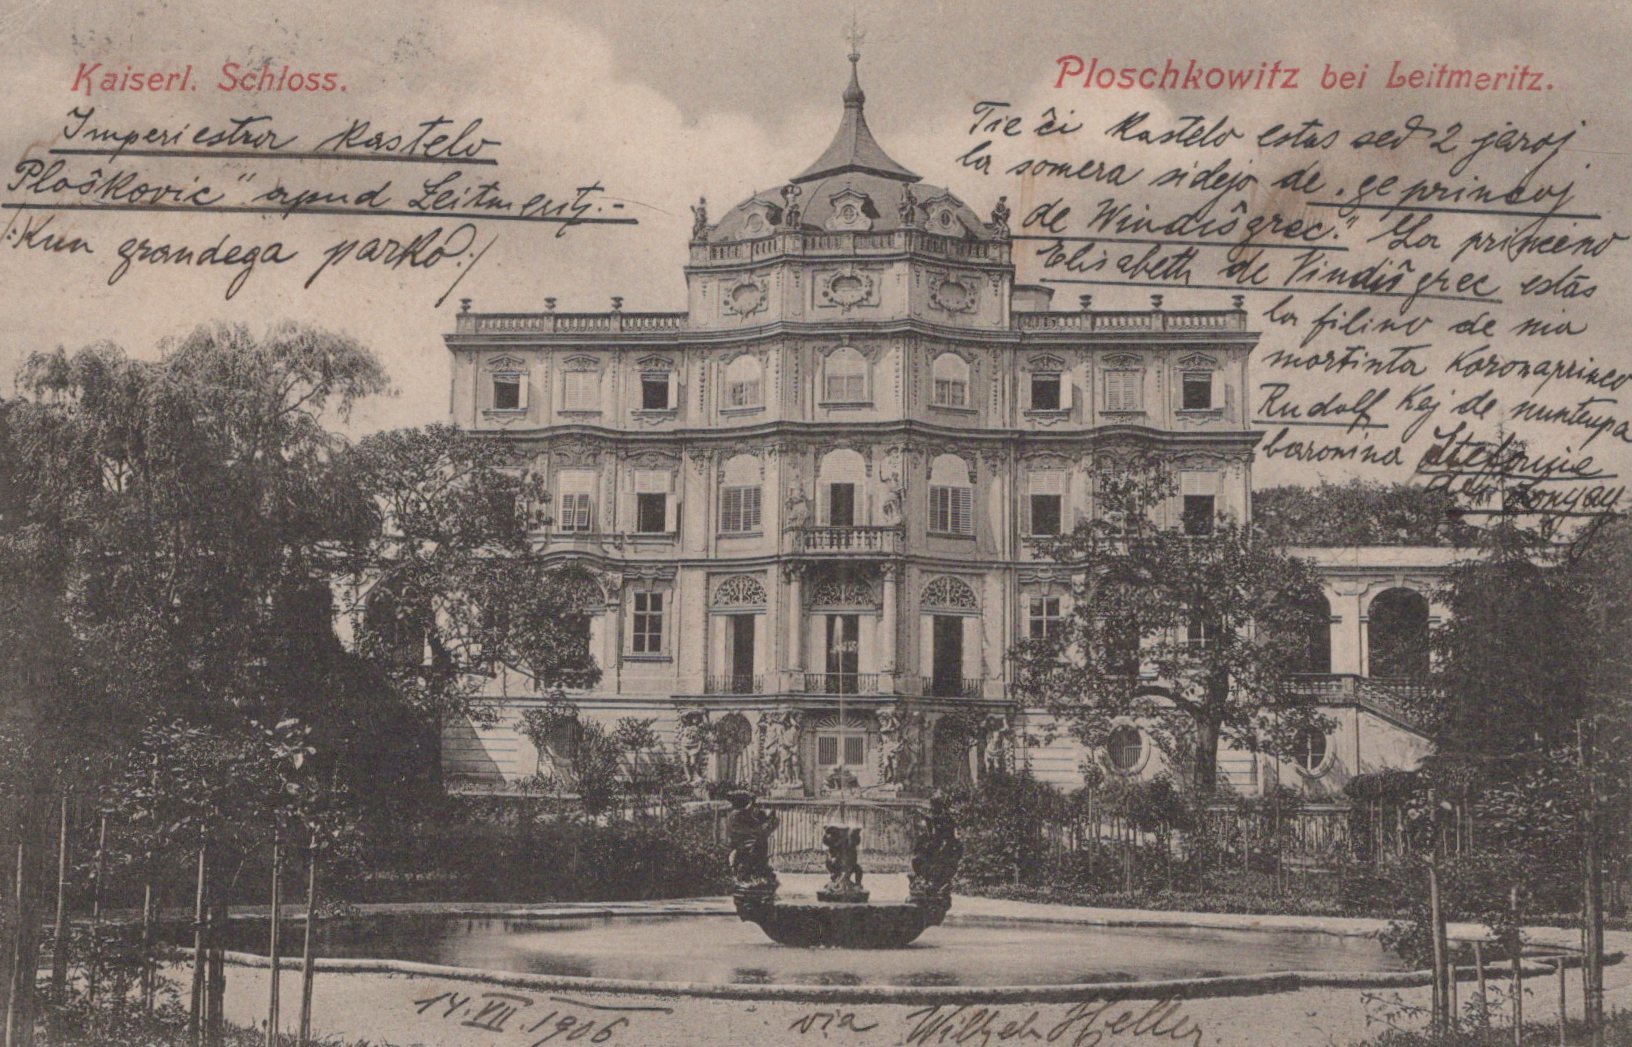 Kaiserl. Schloss.
Ploschkowitz bei Leitmeritz.
Imperiestra kastelo
Ploškovic" apud Leitmeritz.-
/:Kun grandega parko:/
Tie ĉi kastelo estas sed 2 jaroj
la somera sidejo de „ge princoj
de Windiŝgrec." La princino
Elisabeth de Vindiŝgrec estas
la filino de nia
mortinta Kronprinco
Rudolf kaj de nuntempa
baronino Stefanie
Lonyay
14. VII. 1906
via Wilhelm Heller.